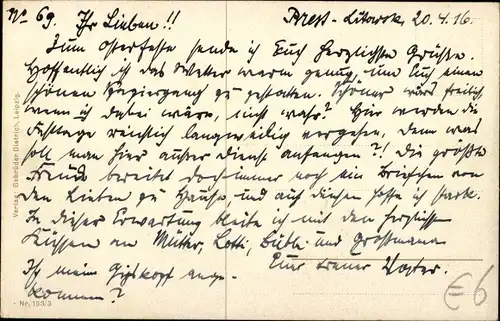 No 69. Ihr Lieben!! Brest-Litowsk, 20.4.16.
Zum Osterfeste sende ich Euch herzlichste Grüße.
Hoffentlich ist das Wetter warm genug, um Euch einen
schönen Spaziergang zu gestatten. Schöner wärs freilich,
wenn ich dabei wäre, nicht wahr? Hier werden die
Festtage reichlich langweilig vergehen, denn was
soll man hier außer Dienst anfangen?! Die größte
Freude bereitet doch immer noch ein Briefchen von
den Lieben zu Hause, und auf diesen hoffe ich stark.
In dieser Erwartung bleibe ich mit den herzlichsten
Küssen an Mutter, Lotti, Bübli und Großmama
Euer treuer Vater.
Ist mein Gipskopf ange-
kommen?
Verlag Gebrüder Dietrich, Leipzig.
- Nr. 153/3
€6